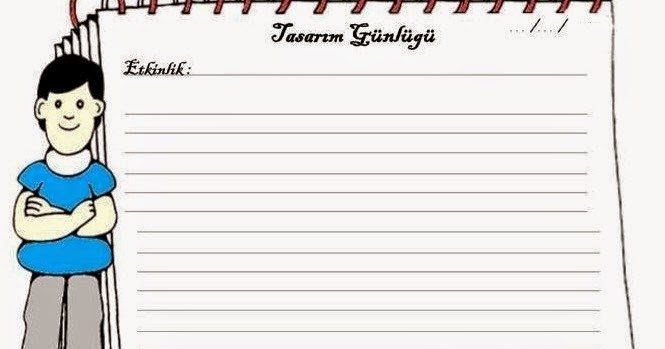 Tasarım Günlüğü
.../.../
Etkinlik: